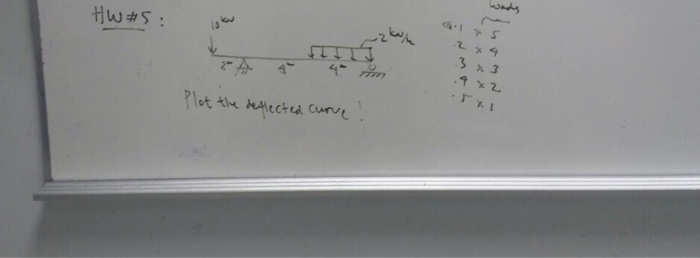 HW#5:
10kN
2kN/m
2m 4m 4m
Plot the deflected curve!
Loads
G.1 x 5
.2 x 4
.3 x 3
.4 x 2
.5 x 1